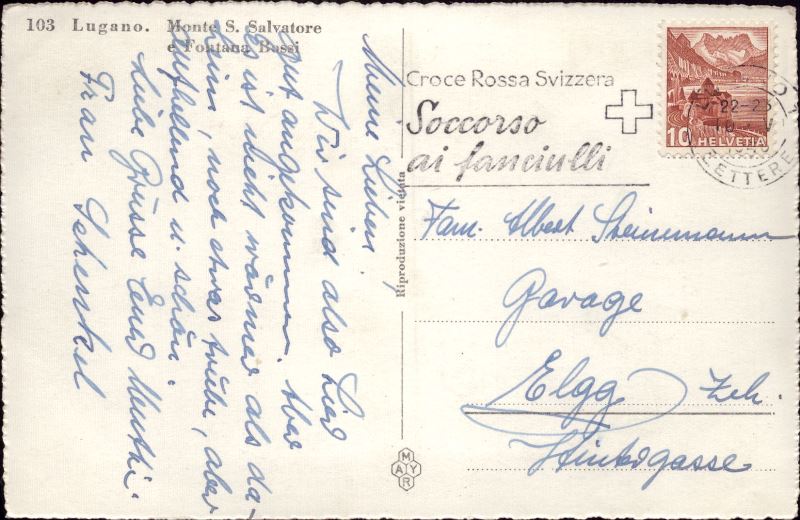 103 Lugano. Monte S. Salvatore
e Fontana Bossi
Meine Lieben
Wir sind also
gut angekommen. Aber
es ist nicht wärmer als da-
heim, noch etwas trübe, aber
aufhellend u. schön.
Liebe Grüsse Eurer Mutti.
Frau Schenkel
Riproduzione vietata
MAYR
Croce Rossa Svizzera
Soccorso
ai fanciulli
10 HELVETIA
22-23
LETTERE
Fam. Albert Steinemann
Garage
Elgg Zch.
Hintergasse